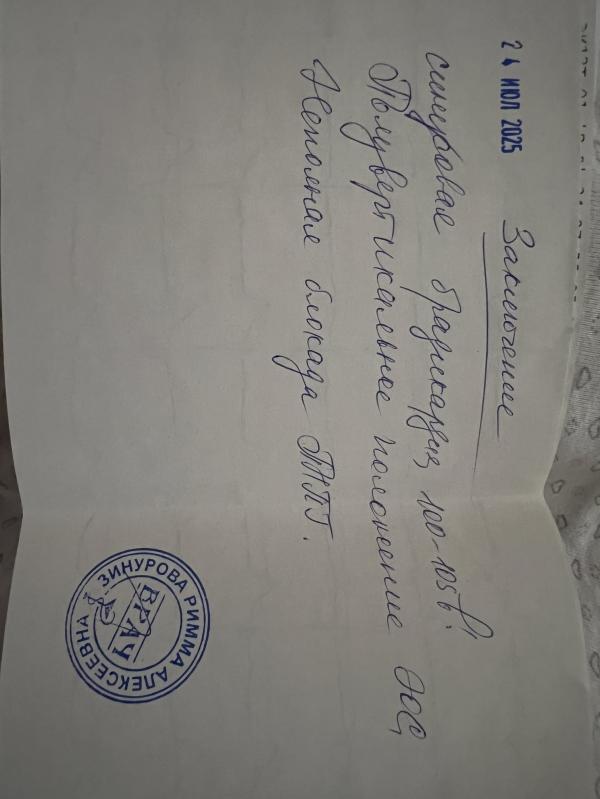 24 ИЮЛ 2025
Заключение
синусовая брадикардия, 100-105 в'.
Полувертикальное положение ЭОС,
Неполная блокада ПНПГ.
ЗИНУРОВА РИММА АЛЕКСЕЕВНА
ВРАЧ